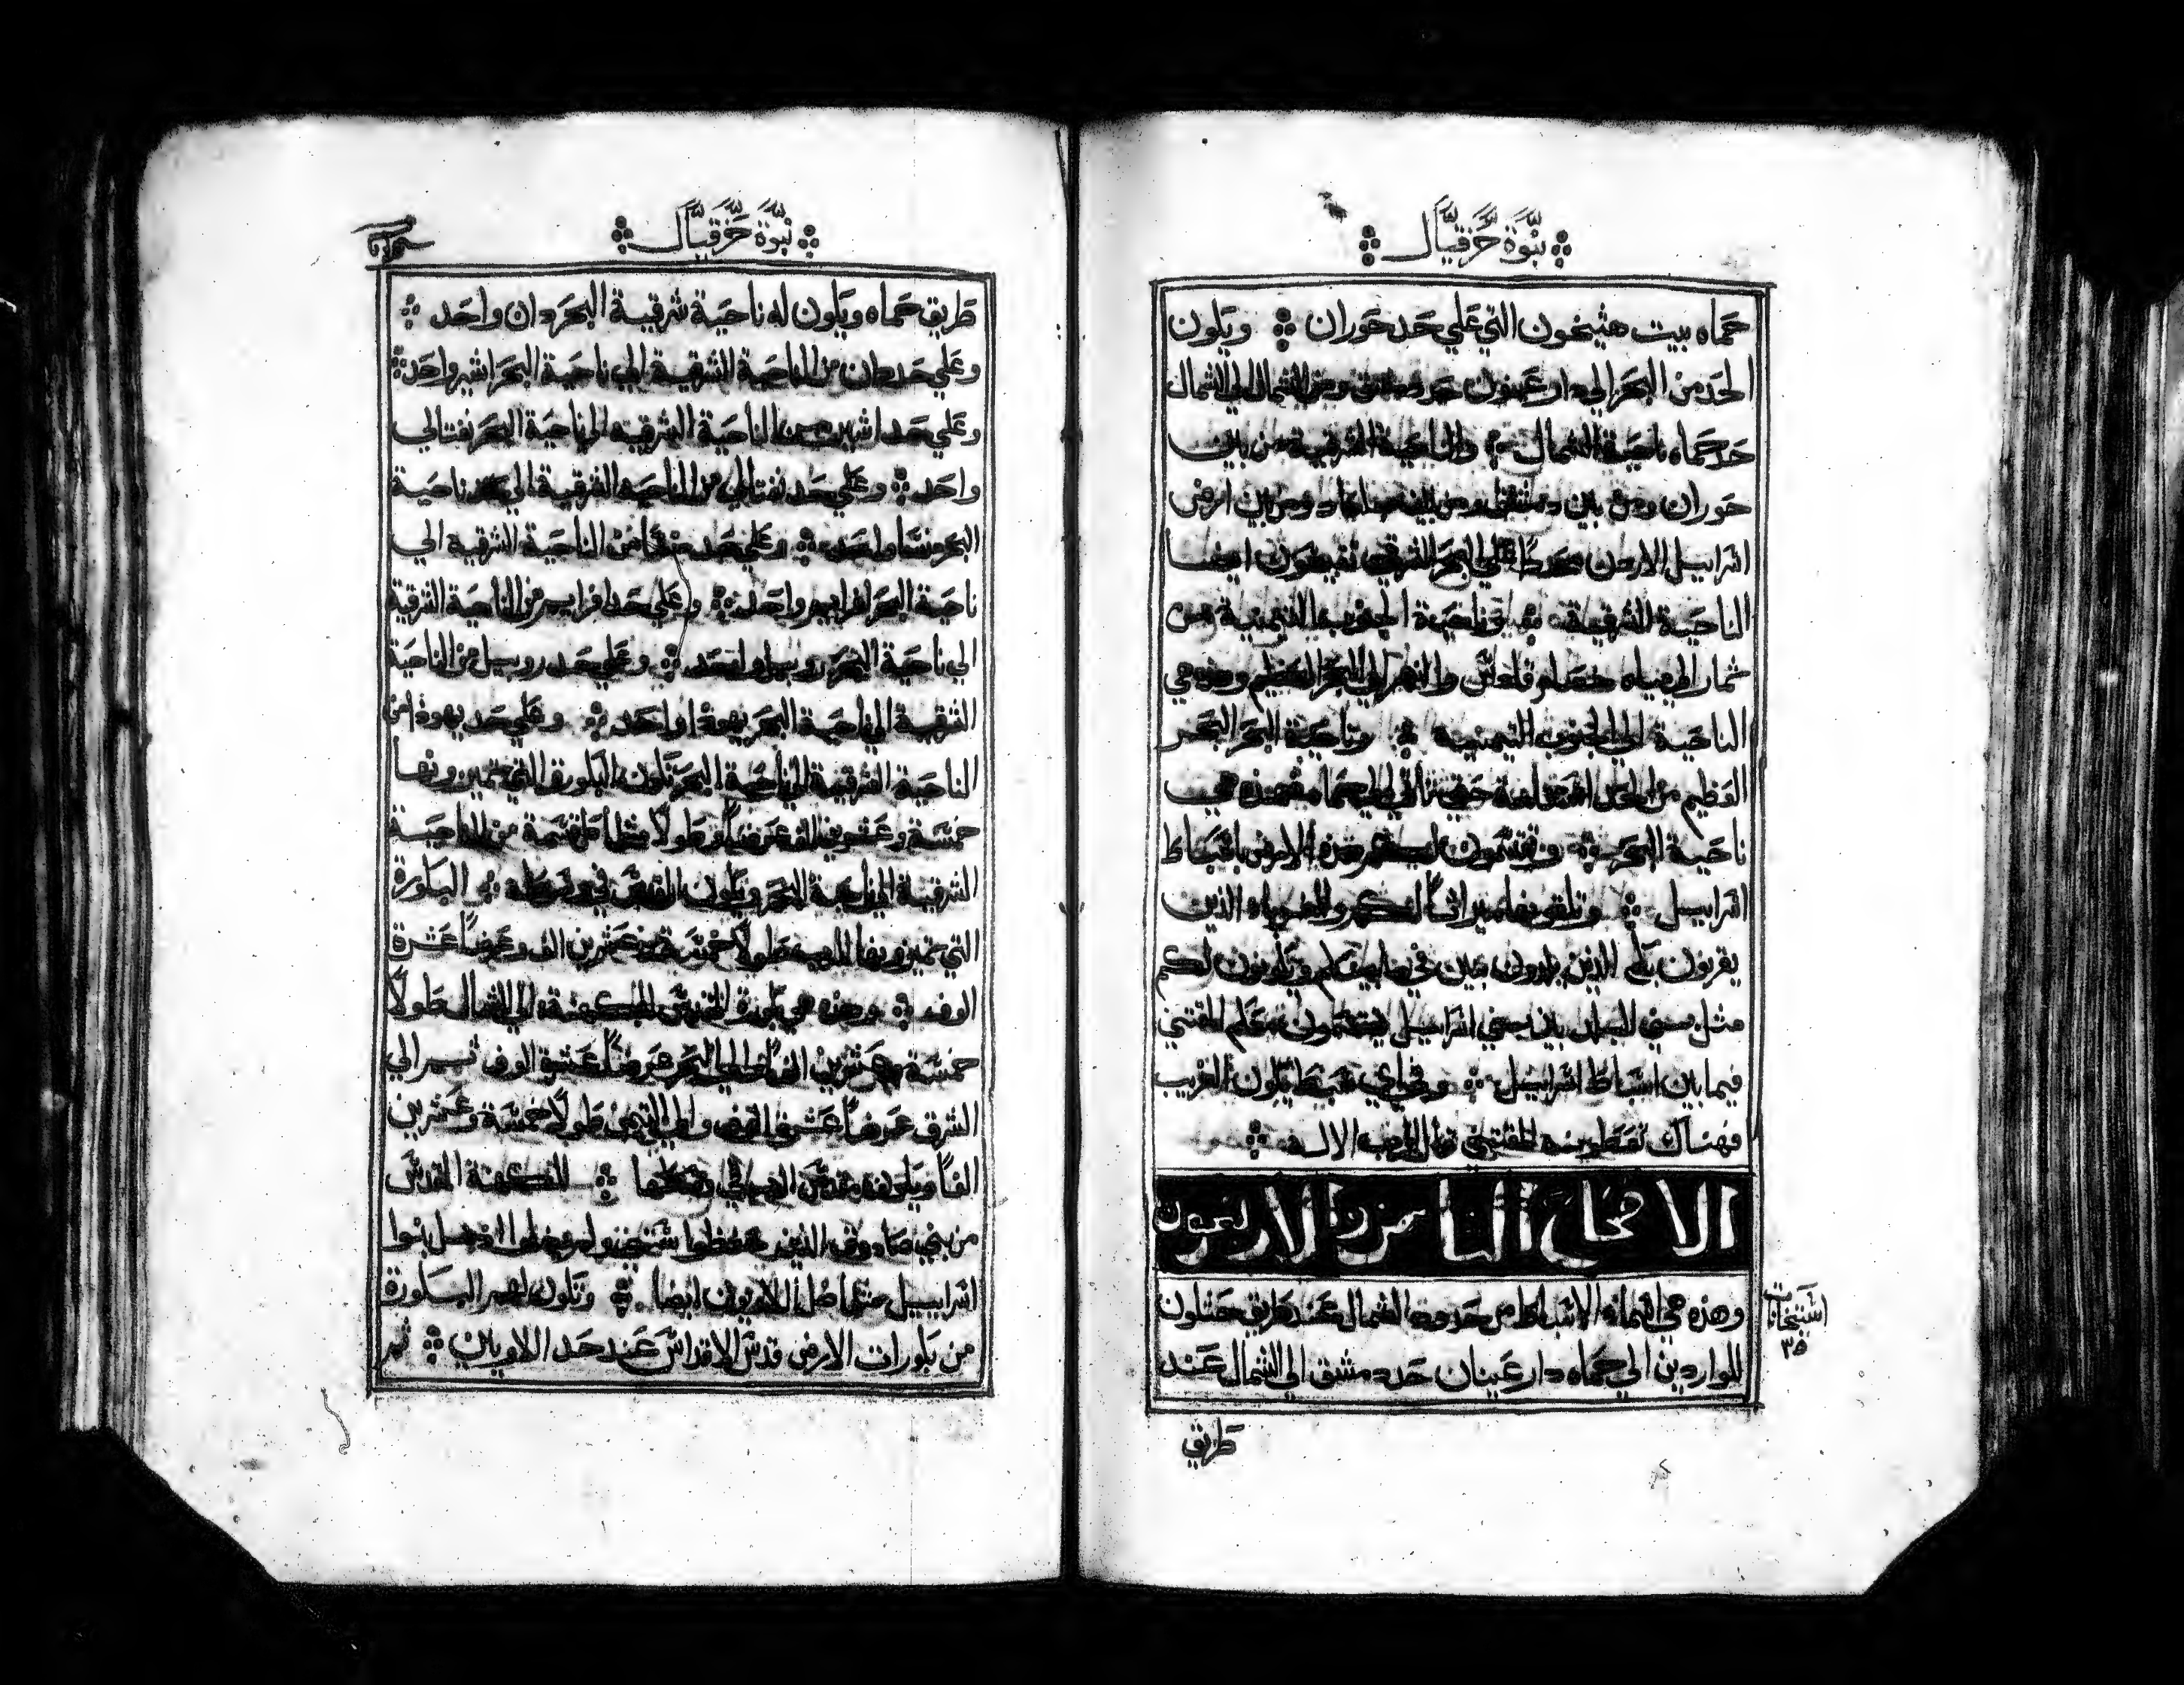 نبوة حزقيال
حماه بيت هثيخون التي علي حد حوران ويكون
الحد من البحر الي دار عينون حد دمشق ومن الشمال الي الشمال
حد حماه ناحية الشمال والناحية الشرقية من بين
حوران ومن بين دمشق ومن بين جلعاد ومن بين ارض
اسراييل الاردن علي البحر الشرقي ايضا
الناحية الشرقية وناحية الجنوب التيمنية من
ثمار الي مياه والنهر الي البحر العظيم وهذه هي
الناحية الي الجنوب التيمنية وناحية البحر البحر
العظيم من الحد حتي تاتي الي حماه فهذه هي
ناحية البحر وتقسمون لكم هذه الارض باسباط
اسراييل وتلقونها ميراثا لكم وللغرباه الذين
يقربون بكم الذين يلدون بنين فيما بينكم ويكونون لكم
مثل بني البلد بين بني اسراييل يقتسمون معكم المقتني
فيما بين اسباط اسراييل وفي اي سبط يكون الغريب
فهناك تعطوينه المقتني قال الرب الاله
الاصحاح الثامن والاربعون
وهذه هي اسماء الاسباط من حدود الشمال عند طريق حتلون
للواردين الي حماه دار عينان حد دمشق الي الشمال عند
٣٥
طريق
نبوة حزقيال
طريق حماه ويكون له ناحية شرقية البحر دان واحد
وعلي حد دان من الناحية الشرقية الي ناحية البحر اشير واحد
وعلي حد اشير من الناحية الشرقيه الي ناحية البحر نفتالي
واحد وعلي حد نفتالي من الناحية الشرقية الي حد ناحية
البحر منسا واحد وعلي حد منسا من الناحية الشرقية الي
ناحية البحر افرايم واحد وعلي حد افرايم من الناحية الشرقية
الي ناحية البحر روبيل واحد وعلي حد روبيل من الناحية
الشرقية الي ناحية البحر يهوذا واحد وعلي حد يهوذا من
الناحية الشرقية الي ناحية البحر تكون البكورة التي تميزونها
خمسة وعشرين الف عرضا وطولا مثل كل قسمة من الناحية
الشرقية الي ناحية البحر ويكون القدس في وسطه البكورة
التي تميزونها للرب طولا خمسة وعشرين الف وعرضا عشرة
الوف وهذه هي بكورة القديس للكهنة الي الشمال طولا
خمسة وعشرين الفا والي البحر عرضا عشرة الوف ثم الي
الشرق عرضا عشرة الوف والي التيمن طولا خمسة وعشرين
الفا ويكون مقدس الرب في وسطها للكهنة المقدس
من بني صادوق الذين حفظوا بنوا
اسراييل مثلما ضل اللاويون ايضا وتكون لهم البكورة
من بكورات الارض قدس الاقداس عند حد اللاويين ثم